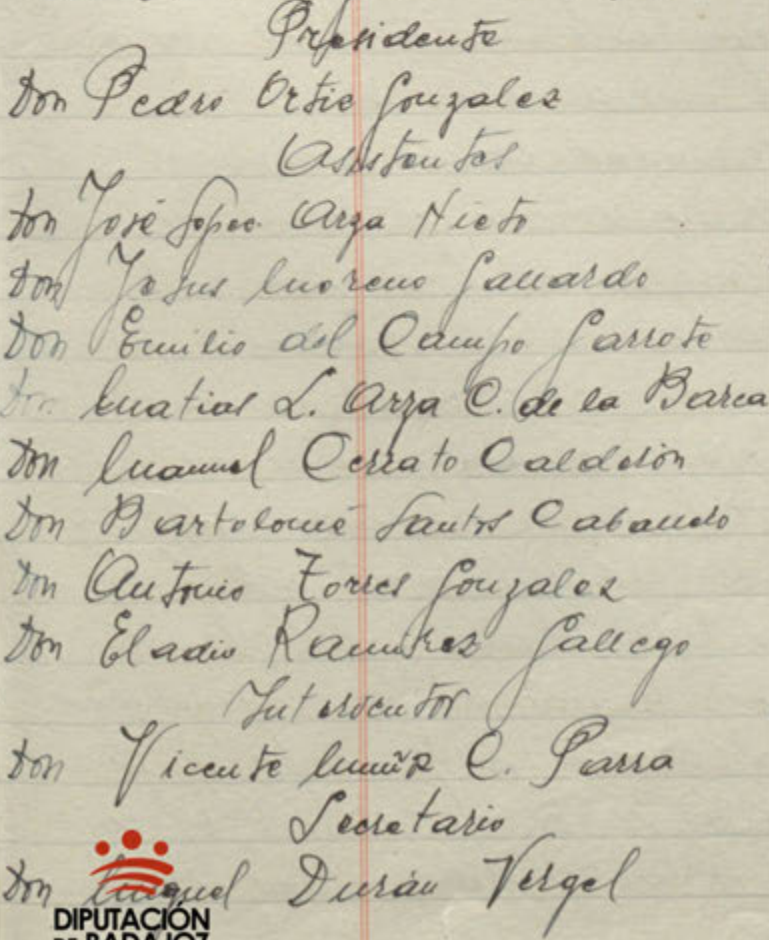 Presidente
Don Pedro Ortiz Gonzalez
Asistentes
Don José Lopez Arza Nieto
Don Jesus Moreno Gallardo
Don Emilio del Campo Garrote
Don Matias L. Arza C. de la Barca
Don Manuel Cerrato Calderón
Don Bartolomé Santos Caballero
Don Antonio Torres Gonzalez
Don Eladio Ramirez Gallego
Don Vicente Muñoz C. Parra
Secretario
Don Miguel Durán Vergel
DIPUTACIÓN
DE BADAJOZ